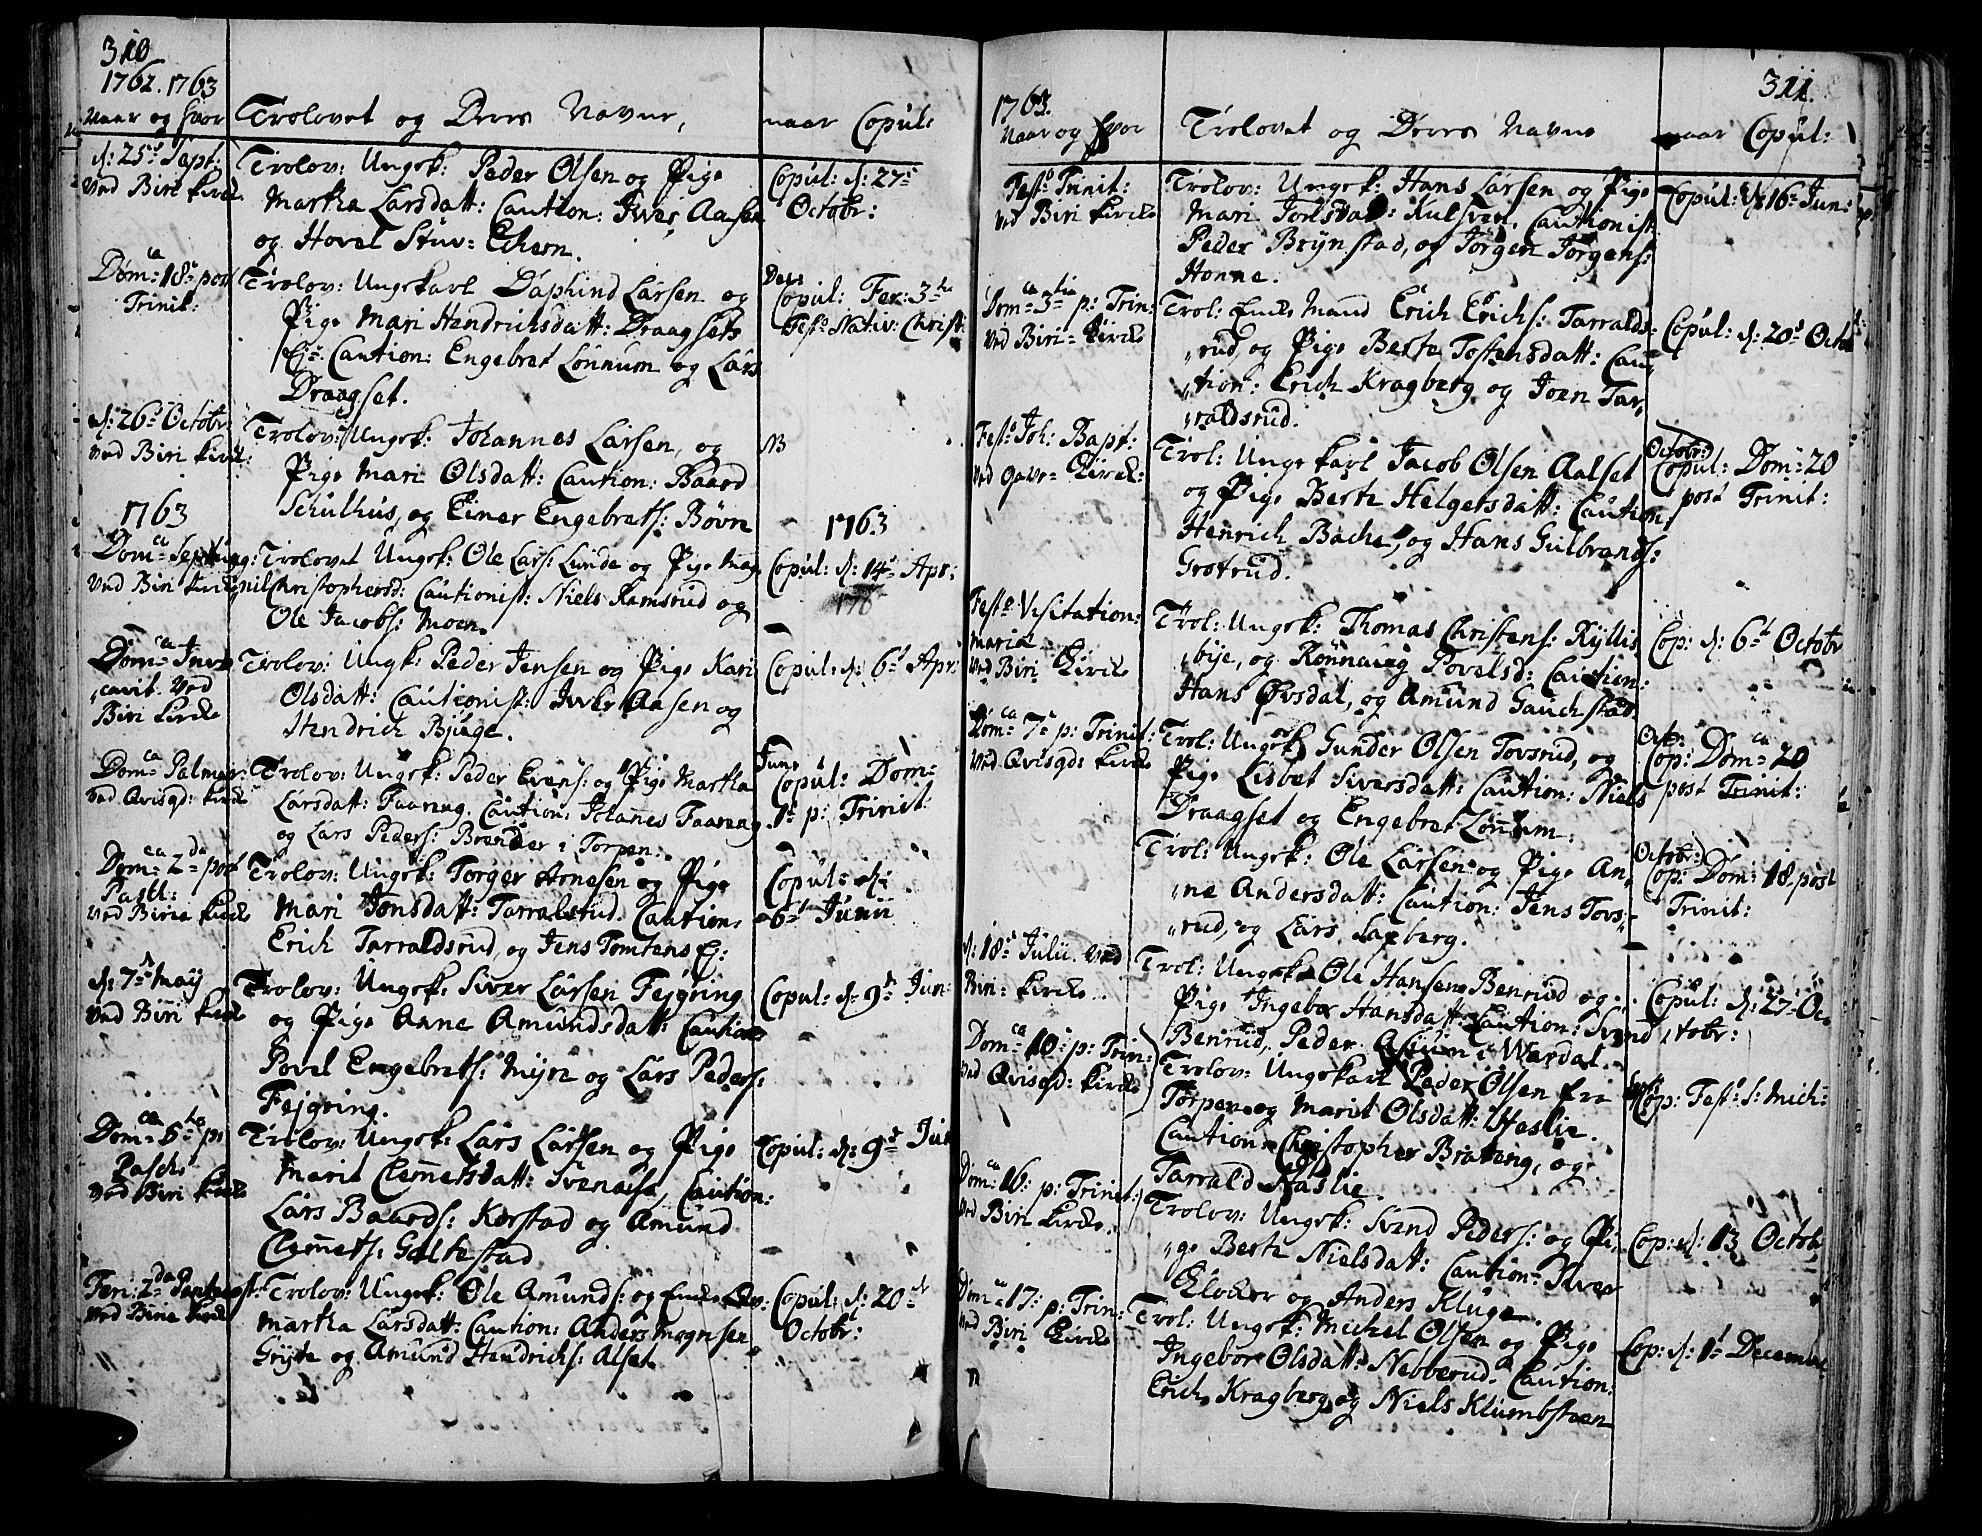 310
1762. 1763
Naar og hvor
Trolovet og Deres Navne,
naar Copul:
d: 25de Sept:
ved Biri Kircke
Trolov: Ungek: Peder Olsen og Pige
Martha Larsdatt: Caution: Iver Aasen
og Hovel Stuv= Echern.
Copul: d: 27de
Octobr:
Domca 18de post
Trinit:
Trolov: Ungekarl Daphind Larsen og
Pige Mari Hendrichsdatt: Draagsets
Ej= Caution: Engebret Lönnum og Lars
Draagset.
Copul: Fer: 3tia
Festo Nativ: Christ:
d: 26de Octobr:
ved Biri Kirck:
Trolov: Ungek: Johannes Larsen, og
Pige Mari Olsdatt: Caution: Baard
Schulhus, og Einer Engebrets: Bövre
NB
1763
1763
Domca Septuag:
ved Biri Kircke
Trolovet Ungek: Ole Lars: Lunde og Pige Mag-
nil Christophersd: Cautionist: Niels Ramsrud og
Ole Jacobs: Moen.
Copul: d: 14de Apr:
Domca Invo-
cavit. ved
Biri Kircke
Trolov: Ungk: Peder Jensen og Pige Kari
Olsdatt: Cautionist: Iver Aasen og
Hendrich Bjuge.
Copul: d: 6te Apr:
Domca Palmar:
ved Qvisgd: Kircke
Trolov: Ungek: Peder Evens: og Pige Martha
Larsdatt: Faarug, Caution: Johanes Faarug
og Lars Peders: Brender i Torpen.
Jun:
Copul: Dom=
1ste p: Trinit:
Domca 2da post
Pasch:
ved Birie Kircke
Trolov: Ungek: Torger Arnesen og Pige
Mari Jonsdatt: Tarralsrud. Caution:
Erich Tarraldsrud, og Jens Tomtens Ej:
Copul: d:
6te Junii
d: 7de May
ved Biri Kircke
Trolov: Ungek: Siver Larsen Fejgring
og Pige Anne Amundsdatt: Caution
Povel Engebrets: Myre og Lars Peders:
Fejgring.
Copul: d: 9de Jun:
Domca 5te p:
Pasch:
ved Biri Kircke
Trolov: Ungek: Lars Larsen og Pige
Marit Clemetsdatt: Svenaes, Caution:
Lars Baards: Korstad og Amund
Clemets: Galtestad
Copul: d: 9de Jun
Feri: 2da Pentecost:
ved Birie Kircke
Trolov: Ungek: Ole Amunds: og Encke
Martha Larsdatt: Caution: Anders Mognsen
Gryte og Amund Hendrichs: Alset.
Copul: d: 20de
Octobr:
311.
1763.
Naar og hvor
Trolovet og Deres Navne
naar Copul:
Festo Trinit:
ved Biri Kircke
Trolov: Ungek: Hans Larsen og Pige
Mari Torlsdat: Kulsven, Cautionist:
Peder Brynstad, og Jörgen Jörgens:
Honne.
Copul: d: 16de Jun:
Domca 3tia p: Trin:
ved Biri= Kircke
Trol: Encke Mand Erich Erichs: Tarralds-
rud, og Pige Berte Tostensdatt: Cau-
tion: Erich Kragberg og Joen Tar-
raldsrud.
Copul: d: 20de Octo
Festo Joh: Bapt:
Trol: Ungekarl Jacob Olsen Aalset
og Pige Berth Helgersdatt: Caution:
Henrich Bache, og Hans Gulbrands:
Grotrud.
Octobr:
Copul: Dom= 20
post Trinit:
Festo Visitation:
Mariæ
ved Biri Kircke
Trol: Ungek: Thomas Christens: Kyllis-
bye, og Rönnaug Povelsd: Caution:
Hans Övsdal, og Amund Gauchstad.
Cop: d: 6te Octobr
Domca 7de p: Trinit:
ved Qvisgd: Kircke
Trol: Ungek: Gunder Olsen Tovsrud, og
Pige Lidbet Siversdatt: Caution: Niels
Draagset og Engebret Lönnum.
Oct:
Cop: Domca 20
post Trinit:
Trol: Ungek: Ole Larsen og Pige An-
ne Andersdatt: Caution: Jens Tovs-
rud, og Lars Laxberg.
Octobr:
Cop: Dom= 18 post
Trinit:
d: 18de Julii ved
Biri= Kircke
Trol: Ungek: Ole Hansen Benrud og
Pige Ingebor Hansdatt: Caution: Svend
Benrud, Peder i Wardal.
Copul: d: 27 Oc-
tobr:
Domca 10de p: Trin:
ved Qvisgd: Kircke
Trolov: Ungekarl Peder Olsen fra
Torpen og Marit Olsdatt: Haslie.
Caution: Christopher Brateng, og
Tarrald Haslie.
Cop: Fest: S: Mich:
Domca 16: p: Trinit:
ved Biri Kircke
Trolov: Ungek: Svend Peders: og Pi-
ge Berth Nielsdatt: Caution: Iver
Klocker og Anders Kluge.
Cop: d: 13 Octobr
Domca 17: p: Trin:
ved Biri Kircke
Trol: Ungek: Michel Olsen og Pige
Ingebor Olsdatt: Nebberud. Caution:
Erich Kragberg og Niels Klumbsteen
Cop: d: 1ste Decembr